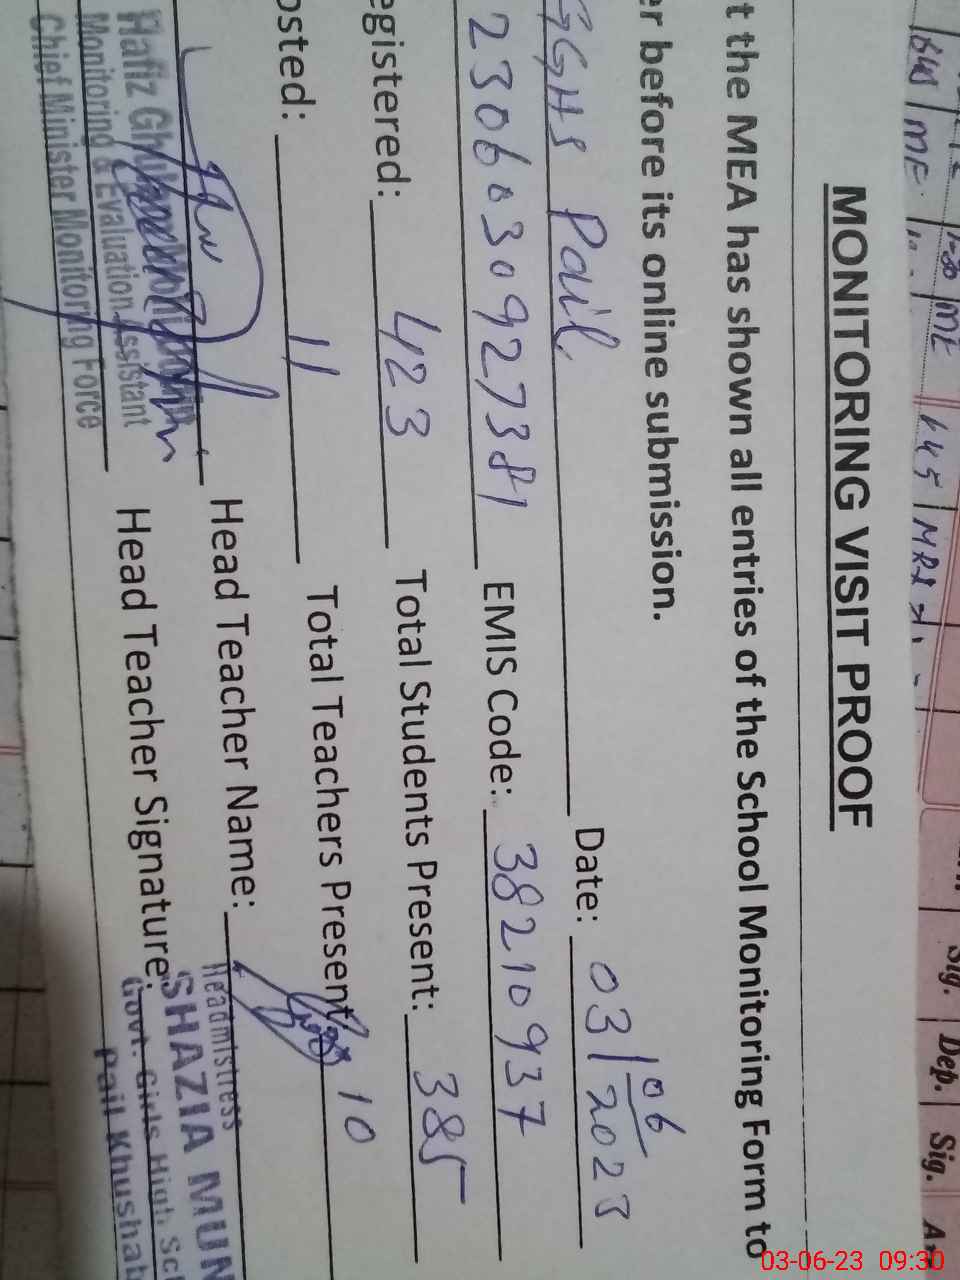 MONITORING VISIT PROOF
t the MEA has shown all entries of the School Monitoring Form to
er before its online submission.
GGHS Pail Date: 03/06/2023
2306030927381 EMIS Code: 38210937
egistered: 423 Total Students Present: 385
osted: 11 Total Teachers Present 10
Head Teacher Name: Headmistress
SHAZIA MUN
Head Teacher Signature: Govt. Girls High Sch
Pail Khushab
Hafiz
Monitoring & Evaluation Assistant
Chief Minister Monitoring Force
145
Sig. Dep. Sig.
03-06-23 09:30